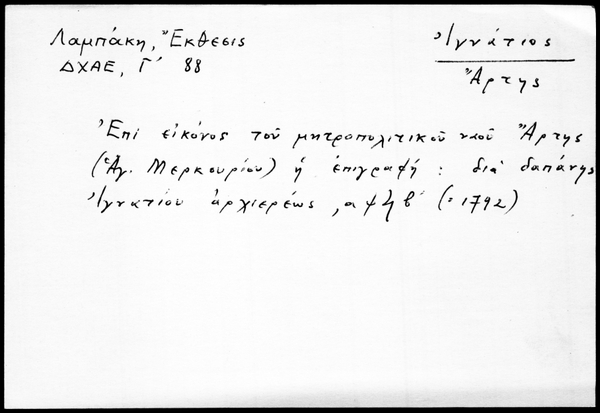 Λαμπάκη, Ἔκθεσις
ΔΧΑΕ, Γ΄ 88
Ἰγνάτιος
Ἄρτης
Ἐπί εἰκόνος τοῦ μητροπολιτικοῦ ναοῦ Ἄρτης
(Ἁγ. Μερκουρίου) ἡ ἐπιγραφή : διά δαπάνης
Ἰγνατίου ἀρχιερέως ͵αψϟβ΄ (=1792)